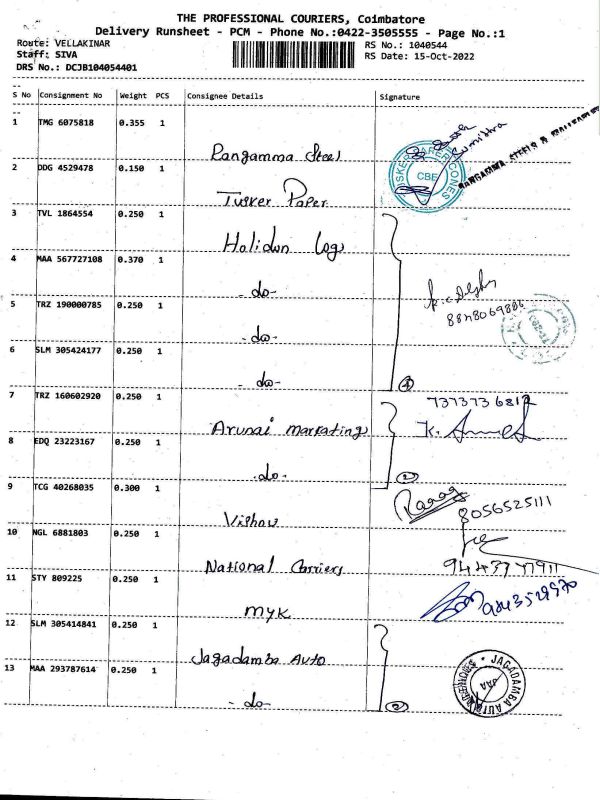 THE PROFESSIONAL COURIERS, Coimbatore
Delivery Runsheet - PCM - Phone No.:0422-3505555 - Page No.:1
Route: VELLAKINAR
RS No.: 1040544
Staff: SIVA
RS Date: 15-Oct-2022
DRS No.: DCJB104054401
S No Consignment No Weight PCS Consignee Details Signature
1 TMG 6075818 0.355 1
Rangamma Steel
Sumithra
RANGAMMA STEELS &
2 DDG 4529478 0.150 1
Tusker Paper
TUSKER PAPER CONES
CBE
3 TVL 1864554 0.250 1
Halidon Logs
4 MAA 567727108 0.370 1
- do -
8848069806
5 TRZ 190000785 0.250 1
- do -
6 SLM 305424177 0.250 1
- do -
4
7 TRZ 160602920 0.250 1
Arunai Marketing
7373736812
8 EDQ 23223167 0.250 1
- do -
2
9 TCG 40268035 0.300 1
Vishaw
8056525111
10 NGL 6881803 0.250 1
National Carriers
11 STY 809225 0.250 1
MYK
12 SLM 305414841 0.250 1
Jagadamba Auto
13 MAA 293787614 0.250 1
- do -
2
JAGADAMBA AUTO AGENCIES
JAA